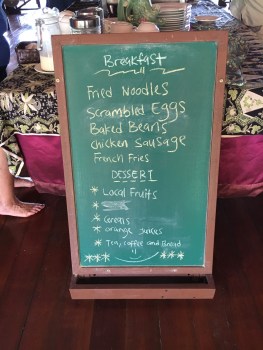 Breakfast
Fried Noodles
Scrambled Eggs
Baked Beans
Chicken Sausage
French Fries
DESSERT
* Local Fruits
*
* Cereals
* Orange Juices
* Tea, coffee and Bread